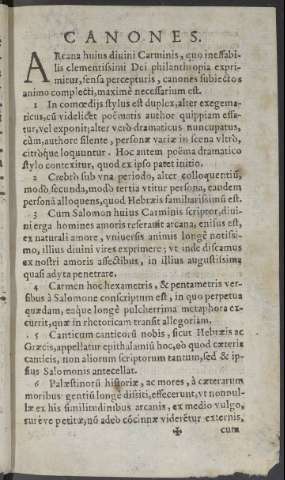 CANONES.
ARcana huius diuini Carminis, quo ineffabi-
lis clementissimi Dei philanthropia expri-
mitur, sensa percepturis, canones subiectos
animo complecti, maximè necessarium est.
1 In comœdijs stylus est duplex, alter exegema-
ticus, cũ videlicet poëmatis author quippiam effa-
tur, vel exponit; alter verò dramaticus nuncupatus,
cùm, authore silente, personæ variæ in scena vltrò,
citròq́ue loquuntur. Hoc autem poëma dramatico
stylo contexitur, quod ex ipso patet initio.
2 Crebrò sub vna periodo, alter colloquentiũ,
modò secunda, modò tertia vtitur persona, eandem
personã alloquens, quod Hebræis familiarissimũ est.
3 Cum Salomon huius Carminis scriptor, diui-
ni erga homines amoris reserauit arcana, enisus est,
ex naturali amore, vniuersis animis longè notissi-
mo, illius diuini vires exprimere; vt inde discamus
ex nostri amoris affectibus, in illius augustissima
quasi adyta penetrare.
4 Carmen hoc hexametris, & pentametris ver-
sibus à Salomone conscriptum est, in quo perpetua
quædam, eaq́ue longè pulcherrima metaphora ex-
currit, quæ in rhetoricam transit allegoriam.
5 Canticum canticorũ nobis, sicut Hebræis ac
Græcis, appellatur epithalamiũ hoc, ob quod cæteris
canticis, non aliorum scriptorum tantùm, sed & ip-
sius Salomonis antecellat.
6 Palæstinorũ historiæ, ac mores, à cæterarum
moribus gentiũ longè dissiti, effecerunt, vt nonnul-
læ ex his similitudinibus arcanis, ex medio vulgo,
rurève petitæ, nõ adeò cõcinnæ viderẽtur externis,
✠ cum